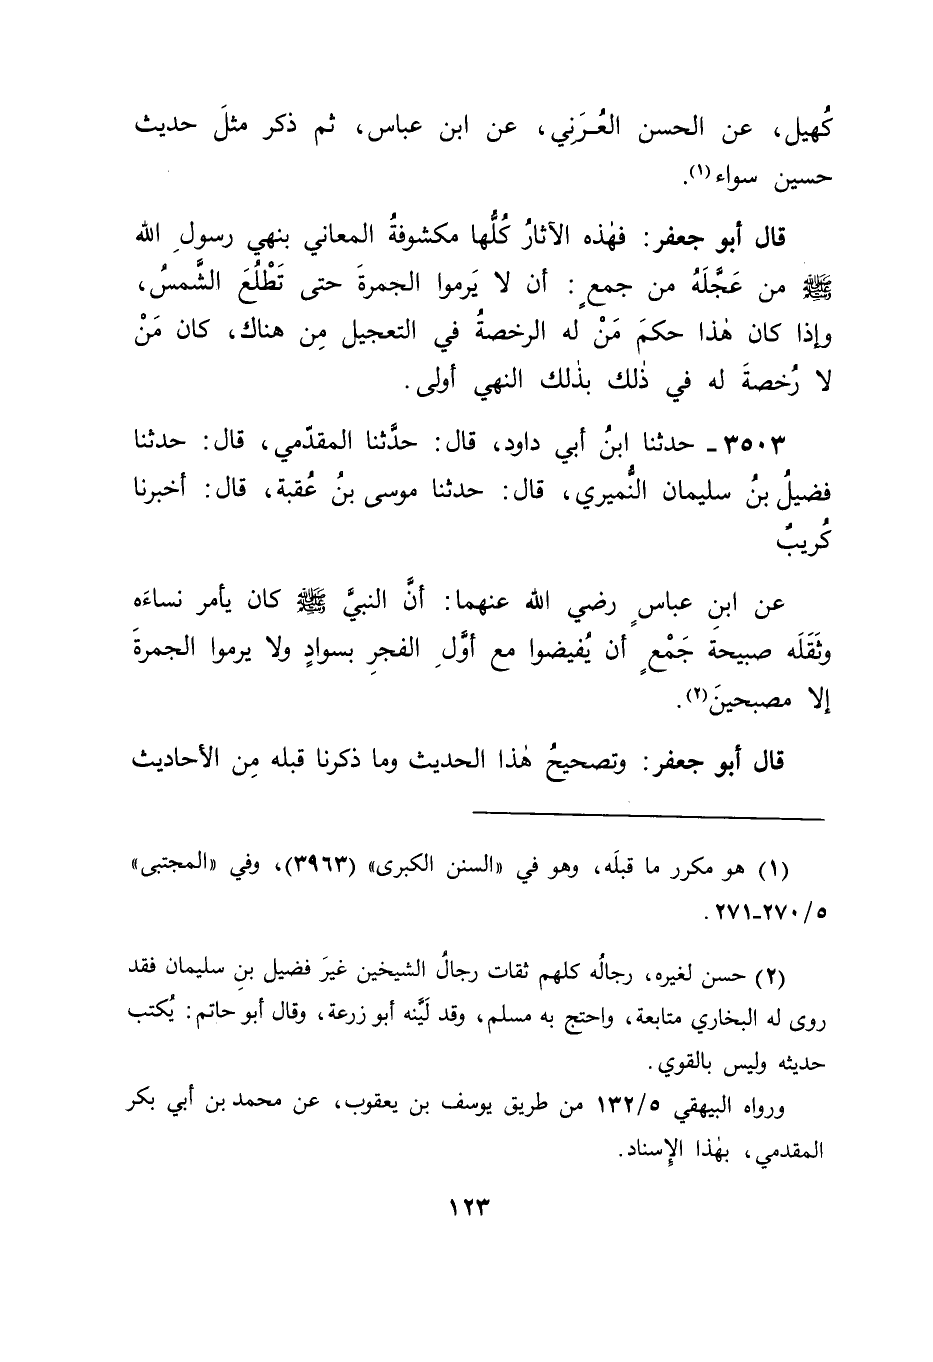 كُهيل، عن الحسن العُرَنِي، عن ابن عباس، ثم ذكر مثلَ حديث
حسين سواء(١).
قال أبو جعفر: فهٰذه الآثارُ كُلُّها مكشوفةُ المعاني بنهي رسولِ الله
ﷺ من عَجَّلَهُ من جمعٍ: أن لا يَرموا الجمرةَ حتى تَطْلُعَ الشَّمسُ،
وإذا كان هٰذا حكمَ مَنْ له الرخصةُ في التعجيل مِن هناك، كان مَنْ
لا رُخصةَ له في ذٰلك بذٰلك النهي أولى.
٣٥٠٣ـ حدثنا ابنُ أبي داود، قال: حدَّثنا المقدّمي، قال: حدثنا
فضيلُ بنُ سليمان النُّميري، قال: حدثنا موسى بنُ عُقبة، قال: أخبرنا
كُريبٌ
عن ابنِ عباسٍ رضي الله عنهما: أنَّ النبيَّ ﷺ كان يأمر نساءَه
وثَقَلَه صبيحة جَمْعٍ أن يُفيضوا مع أوَّلِ الفجرِ بسوادٍ ولا يرموا الجمرةَ
إلا مصبحينَ(٢).
قال أبو جعفر: وتصحيحُ هٰذا الحديث وما ذكرنا قبله مِن الأحاديث
(١) هو مكرر ما قبلَه، وهو في «السنن الكبرى» (٣٩٦٣)، وفي «المجتبى»
٥/٢٧٠ـ٢٧١.
(٢) حسن لغيره، رجالُه كلهم ثقات رجالُ الشيخين غيرَ فضيل بنِ سليمان فقد
روى له البخاري متابعة، واحتج به مسلم، وقد لَيَّنه أبو زرعة، وقال أبو حاتم: يُكتب
حديثه وليس بالقوي.
ورواه البيهقي ٥/١٣٢ من طريق يوسف بن يعقوب، عن محمد بن أبي بكر
المقدمي، بهٰذا الإِسناد.
١٢٣